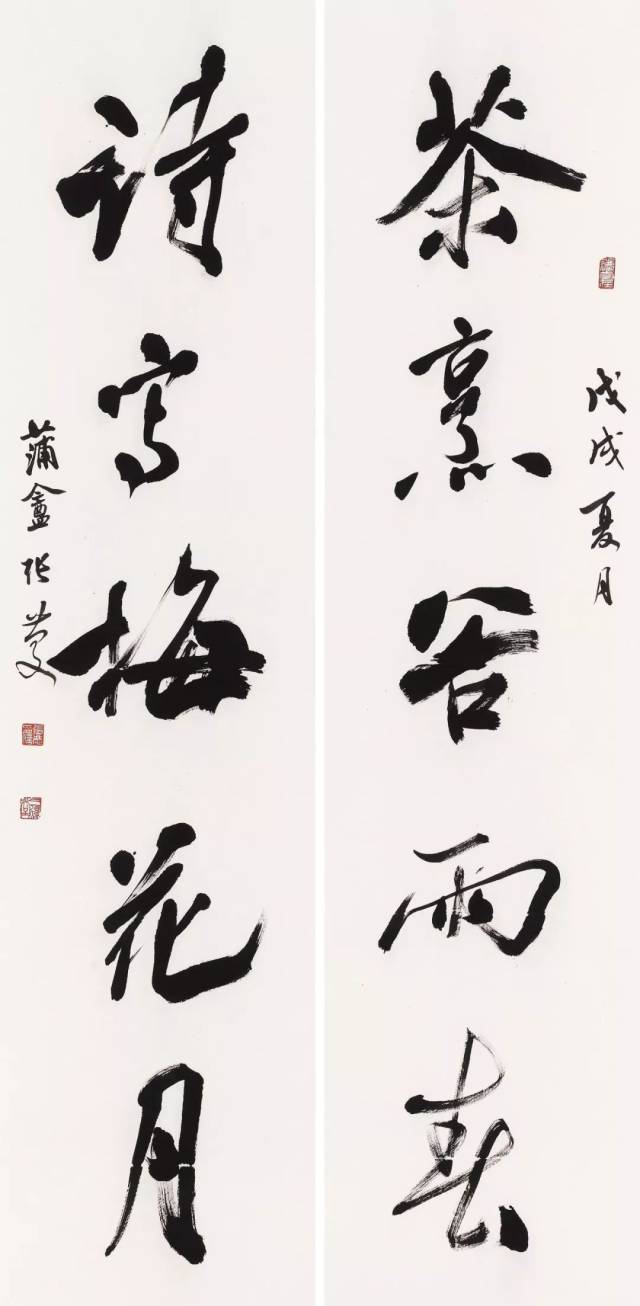 戊戌夏月
茶烹谷雨春
诗写梅花月
蒲盦张